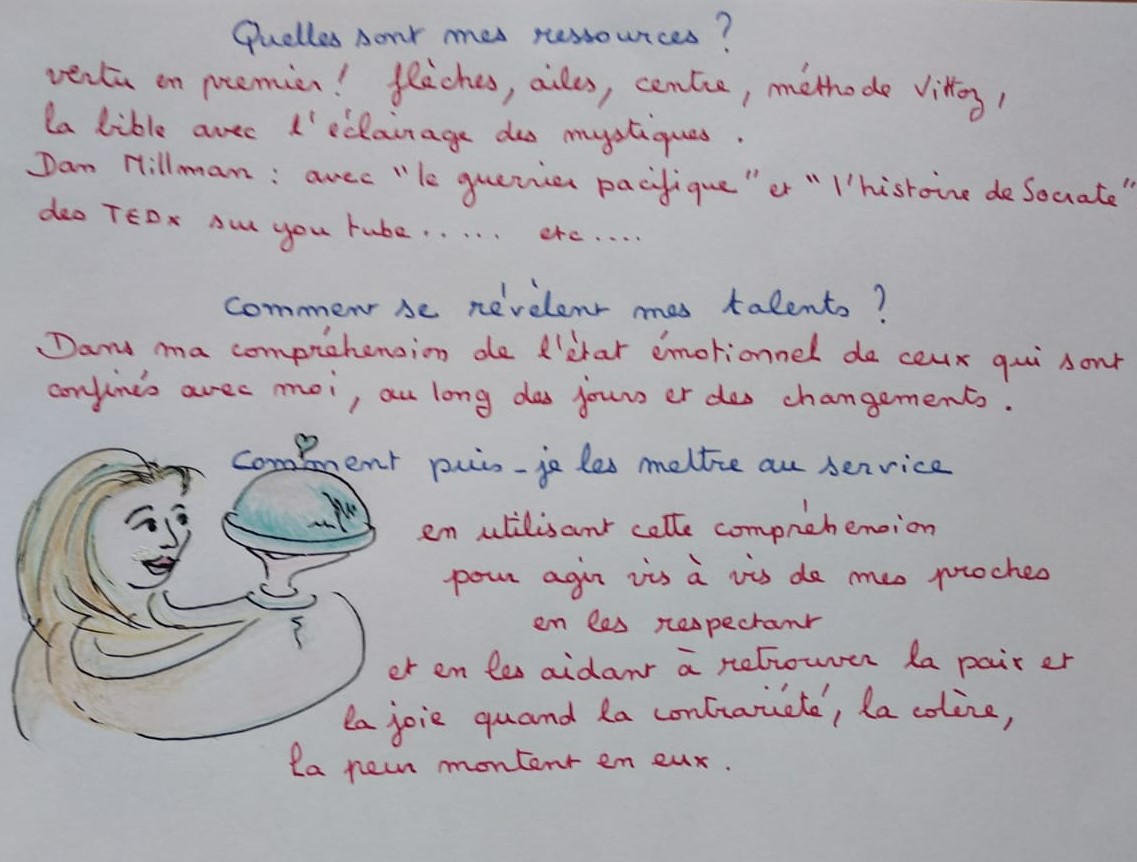 Quelles sont mes ressources ?
vertu en premier ! flèches, ailes, centre, méthode Vittoz,
la bible avec l'éclairage des mystiques.
Dan Millman : avec "le guerrier pacifique" et "l'histoire de Socrate"
des TEDx sur you tube...... etc....
Comment se révèlent mes talents ?
Dans ma compréhension de l'état émotionnel de ceux qui sont
confinés avec moi, au long des jours et des changements.
Comment puis-je les mettre au service
en utilisant cette compréhension
pour agir vis à vis de mes proches
en les respectant
et en les aidant à retrouver la paix et
la joie quand la contrariété, la colère,
la peur montent en eux.